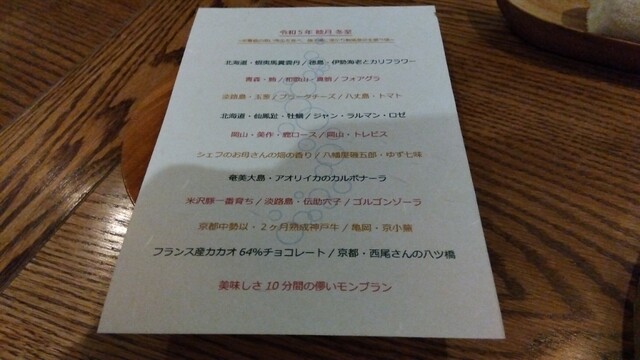 令和5年 睦月 冬至
北海道・根室馬糞雲丹 / 徳島・伊勢海老とカリフラワー
青森・鮪 / 和歌山・真鯛 / フォアグラ
淡路島・玉葱 / ブルーチーズ / 八丈島・トマト
北海道・仙鳳趾・牡蠣 / ジャン・ラルマン・ロゼ
岡山・美作・鹿ロース / 岡山・トレビス
シェフのお母さんの畑の香り / 八幡屋礒五郎・ゆず七味
奄美大島・アオリイカのカルボナーラ
米沢豚一番育ち / 淡路島・伝助穴子 / ゴルゴンゾーラ
京都中勢以・2ヶ月熟成神戸牛 / 亀岡・京小蕪
フランス産カカオ64%チョコレート / 京都・西尾さんの八ツ橋
美味しさ10分間の儚いモンブラン